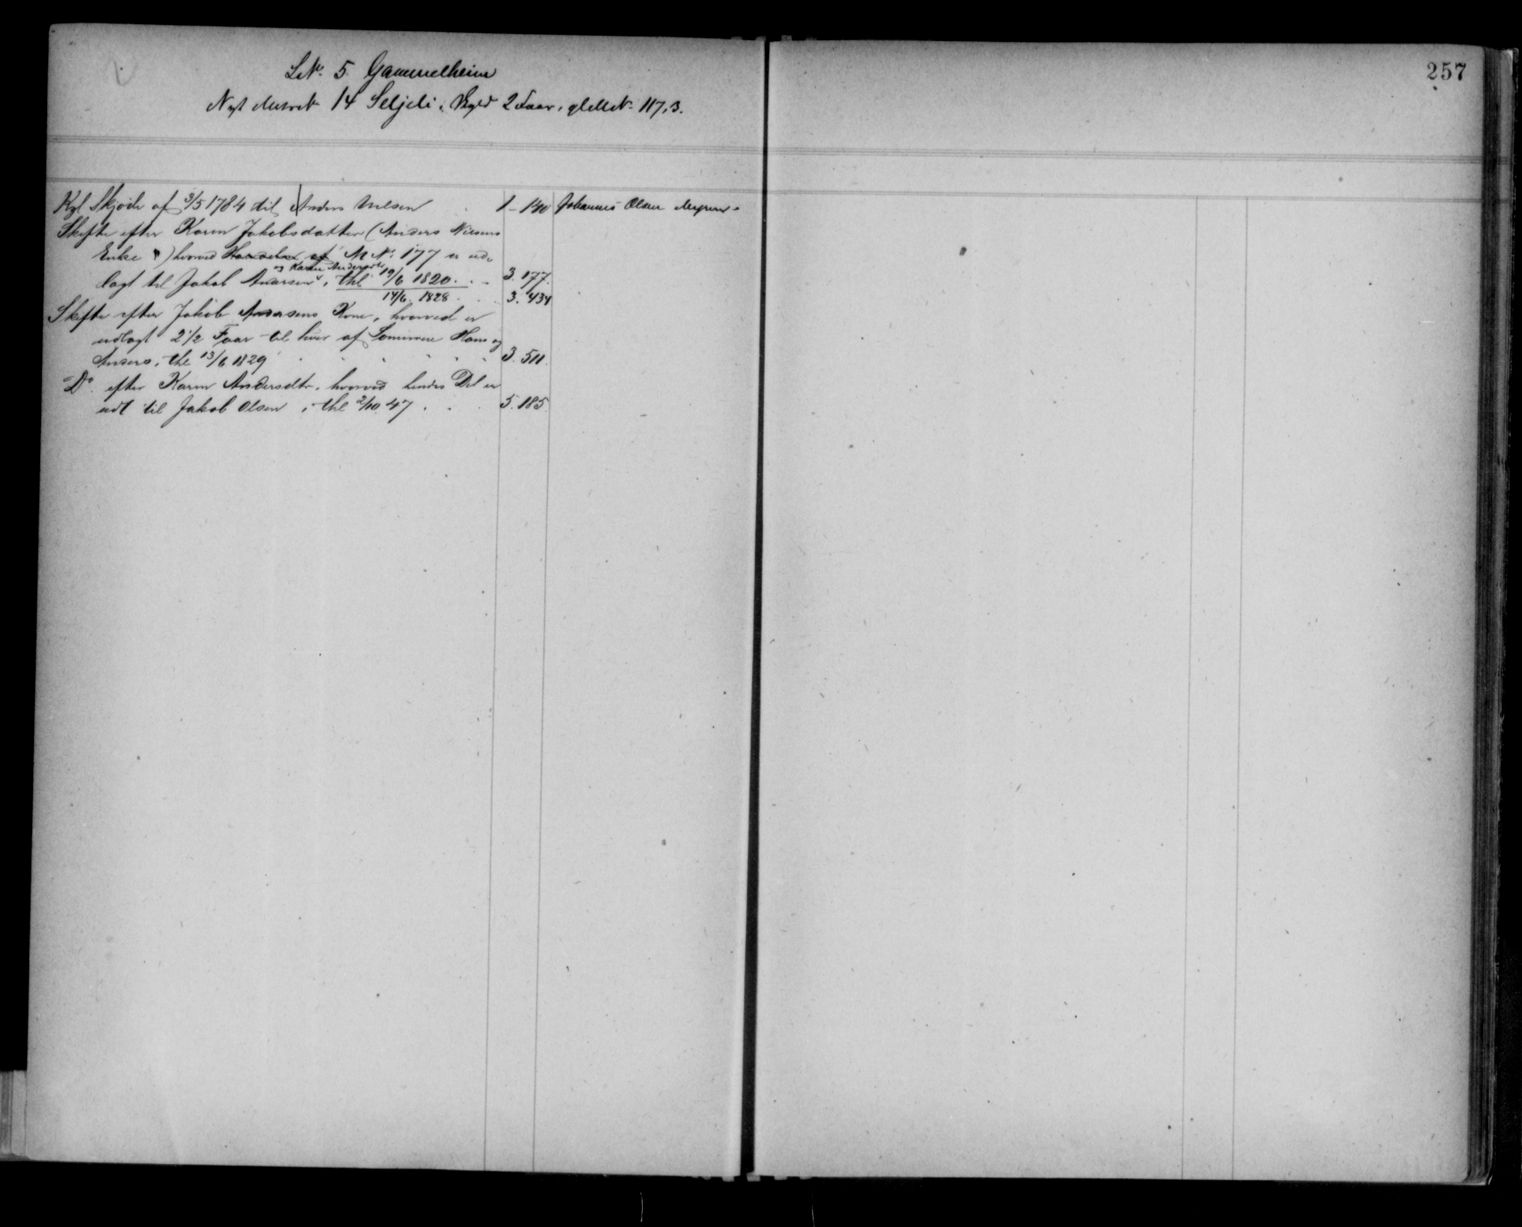 257
L№. 5. Gammelheim
Nyt Matr№ 14 Seljeli, Skyld 2 Faar, gl M№. 117,3.
Kgl Skjøde af 3/5 1784 til Anders Nielsen . 1-140 Johannes Olsen
Skifte efter Karen Jakobsdatter (Anders Nielsens
Enke) hvorved M№. 177 er ud-
og Karen Andersdtr
lagt til Jakob Andersen, thl 19/6 1820 . . 3. 177.
14/6. 1828 . . 3. 434
Skifte efter Jakob Andersens Kone, hvorved er
udlagt 2 1/2 Faar til hver af Sønnerne Hans og
Anders, thl 13/6 1829 . . . . . 3. 511.
Do. efter Karen Andersdtr. hvorved hendes Del er
udl til Jakob Olsen, thl 2/10 47 . . . 5. 185.